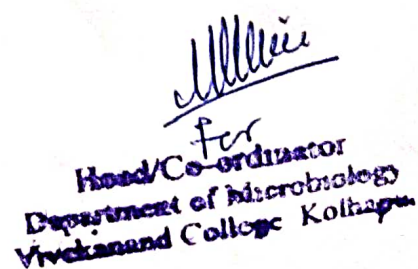 For
Head/Co-ordinator
Department of Microbiology
Vivekanand College Kolhapur